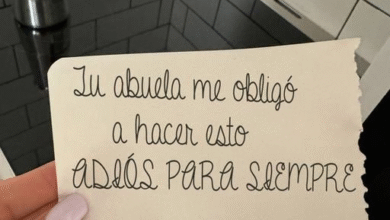 Tu abuela me obligó
a hacer esto
ADIÓS PARA SIEMPRE